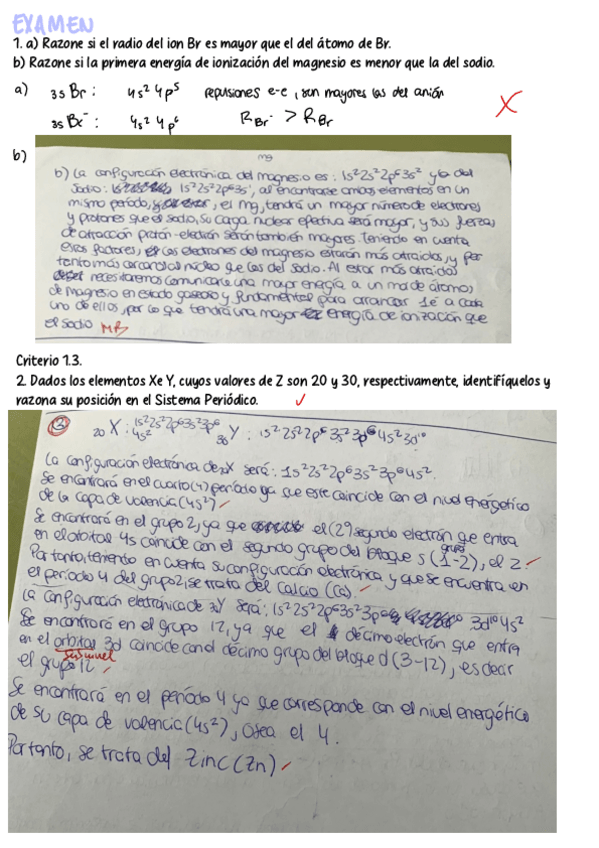 EXAMEN
1. a) Razone si el radio del ion Br es mayor que el del átomo de Br.
b) Razone si la primera energía de ionización del magnesio es menor que la del sodio.
a) 35 Br : 4s² 4p⁵ repulsiones e-e, son mayores las del anión
35 Br⁻ : 4s² 4p⁶ R Br⁻ > R Br
b)
mg
b) La configuración electrónica del magnesio es: 1s²2s²2p⁶3s² y la del
sodio: 1s²2s²2p⁶3s¹, al encontrarse ambos elementos en un
mismo período, el Mg, tendrá un mayor número de electrones
y protones que el sodio, su carga nuclear efectiva será mayor, y sus fuerzas
de atracción protón-electrón serán también mayores. Teniendo en cuenta
estos factores, los electrones del magnesio estarán más atraídos, y por
tanto más cercanos al núcleo que los del sodio. Al estar más atraídos
necesitaremos comunicarle una mayor energía a un mol de átomos
de magnesio en estado gaseoso y fundamental para arrancar 1e⁻ a cada
uno de ellos, por lo que tendrá una mayor energía de ionización que
el sodio MB
Criterio 1.3.
2. Dados los elementos X e Y, cuyos valores de Z son 20 y 30, respectivamente, identifíquelos y
razona su posición en el Sistema Periódico.
20 X : 1s²2s²2p⁶3s²3p⁶ 4s² 30 Y : 1s²2s²2p⁶3s²3p⁶4s²3d¹⁰
La configuración electrónica de 20X será: 1s²2s²2p⁶3s²3p⁶4s².
Se encontrará en el cuarto (4) período ya que este coincide con el nivel energético
de la capa de valencia (4s²)
Se encontrará en el grupo 2, ya que el (2º) segundo electrón que entra
en el orbital 4s coincide con el segundo grupo del bloque s (grupo 1-2), el 2.
Por tanto, teniendo en cuenta su configuración electrónica y que se encuentra en
el período 4 del grupo 2, se trata del Calcio (Ca).
La configuración electrónica de 30Y será: 1s²2s²2p⁶3s²3p⁶ 3d¹⁰4s²
Se encontrará en el grupo 12, ya que el décimo electrón que entra
en el orbital 3d coincide con el décimo grupo del bloque d (3-12), es decir
subnivel
el grupo 12
Se encontrará en el período 4 ya que corresponde con el nivel energético
de su capa de valencia (4s²), osea el 4.
Por tanto, se trata del Zinc (Zn)